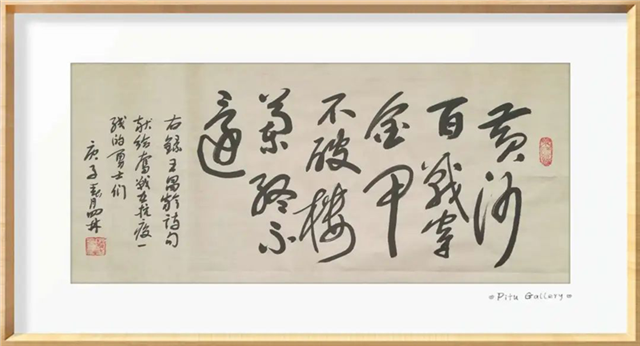 黄沙
百戰穿
金甲
不破樓
蘭終不
還
右録王昌龄詩句
献给奮战在抗疫一
线的勇士们
庚子春月
Pitu Gallery